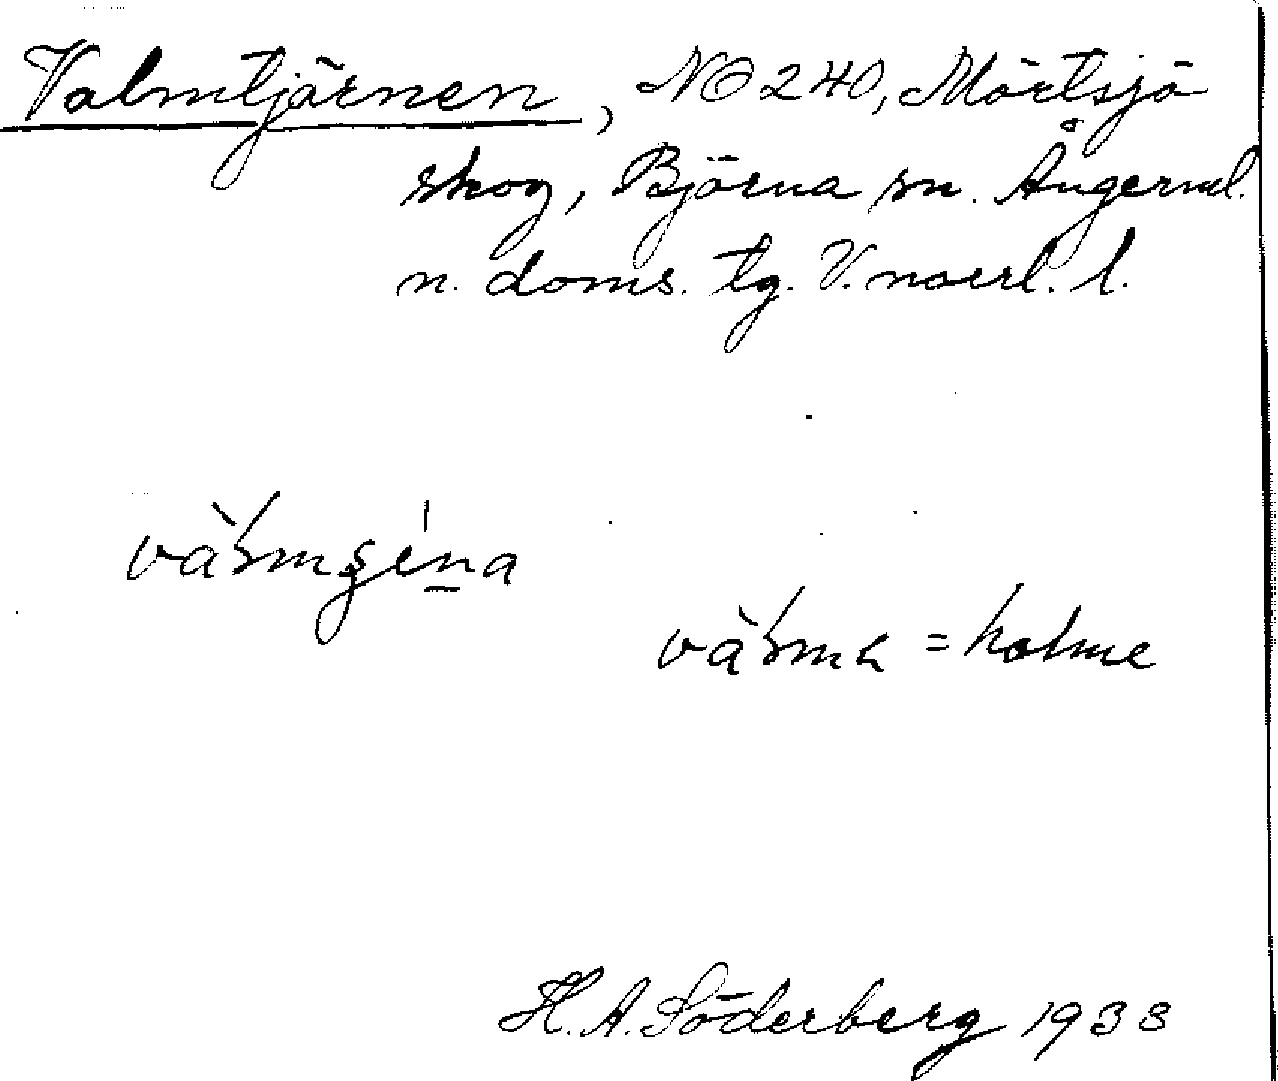 Valmtjärnen, NO 240, Mörtsjö
skog, Björna sn. Ångerml.
n. doms. tg. V. norrl. l.
vàlma = holme
H. A. Söderberg 1933